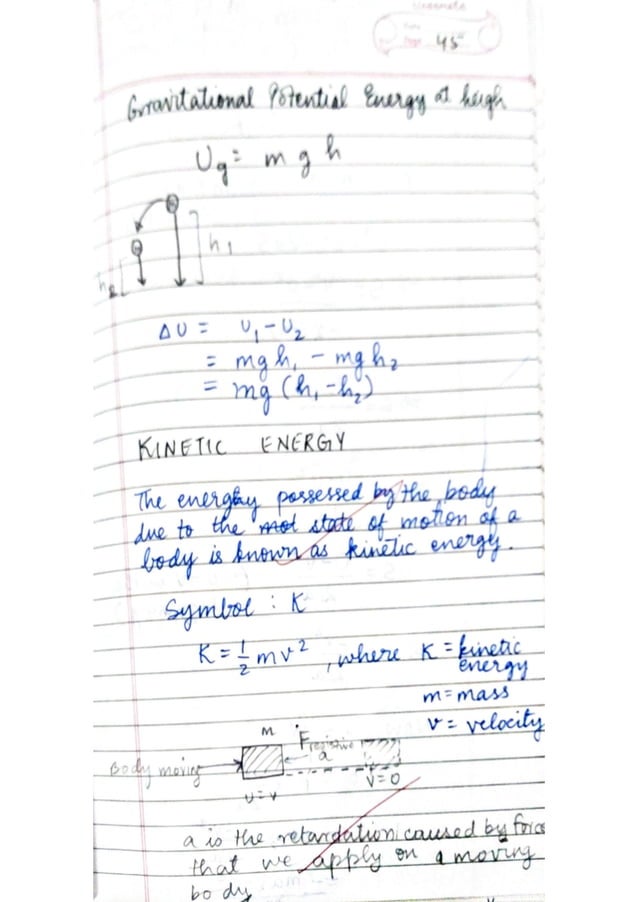 45
Gravitational Potential Energy at heigh
Ug = m g h
h1
h2
ΔU = U1 - U2
= mgh1 - mgh2
= mg (h1 - h2)
KINETIC ENERGY
The energy possessed by the body
due to the state of motion of a
body is known as kinetic energy.
Symbol : K
K = 1/2 mv², where K = kinetic
energy
m = mass
v = velocity
M Fresistive
Body moving a
u = v V = 0
a is the retardation caused by force
that we apply on a moving
body